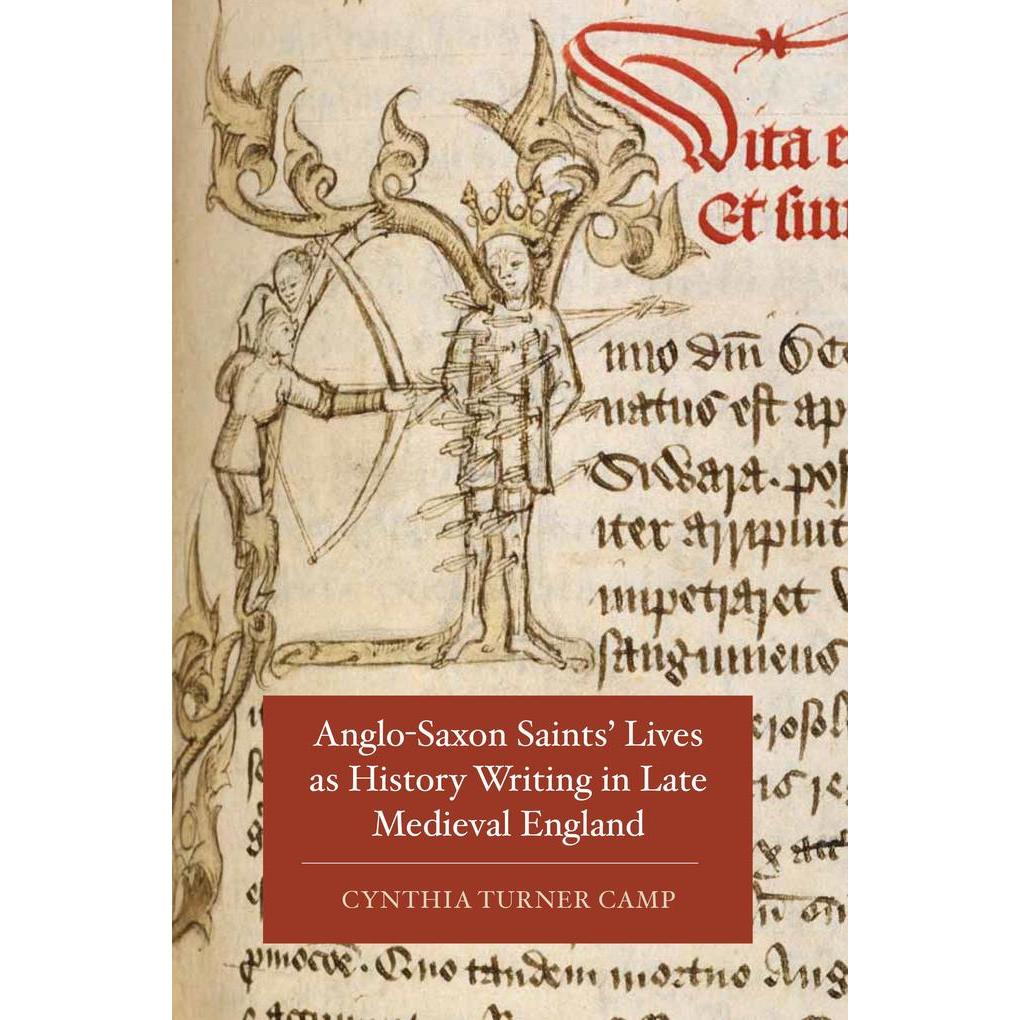 Vita e
Et siu
nno dm̄ Oct
natus est ap
Siwara. pos
iter arripiut
impetraret
sanguineus
Anglo-Saxon Saints’ Lives
as History Writing in Late
Medieval England
CYNTHIA TURNER CAMP
Quo tandem mortuo Aug